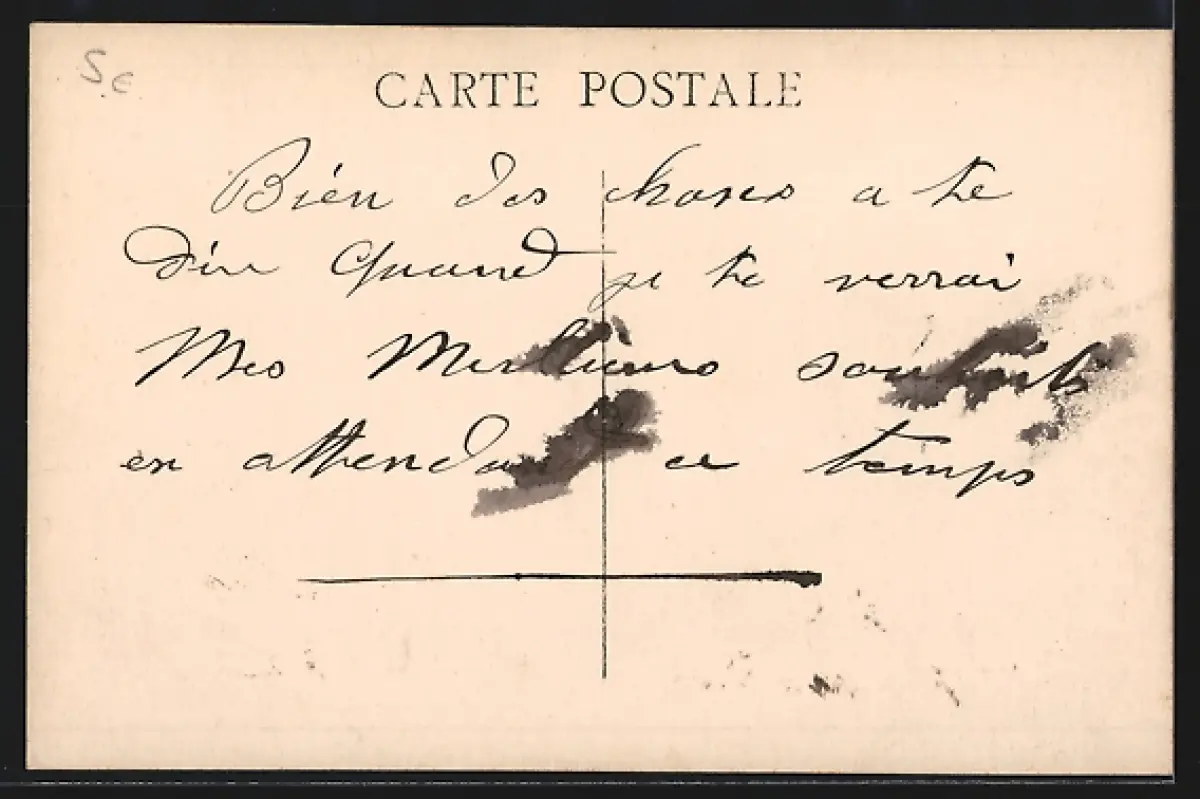 S€
CARTE POSTALE
Bien des choses a te
dire Quand je te verrai
Mes Meilleurs souhaits
en attendant ce temps